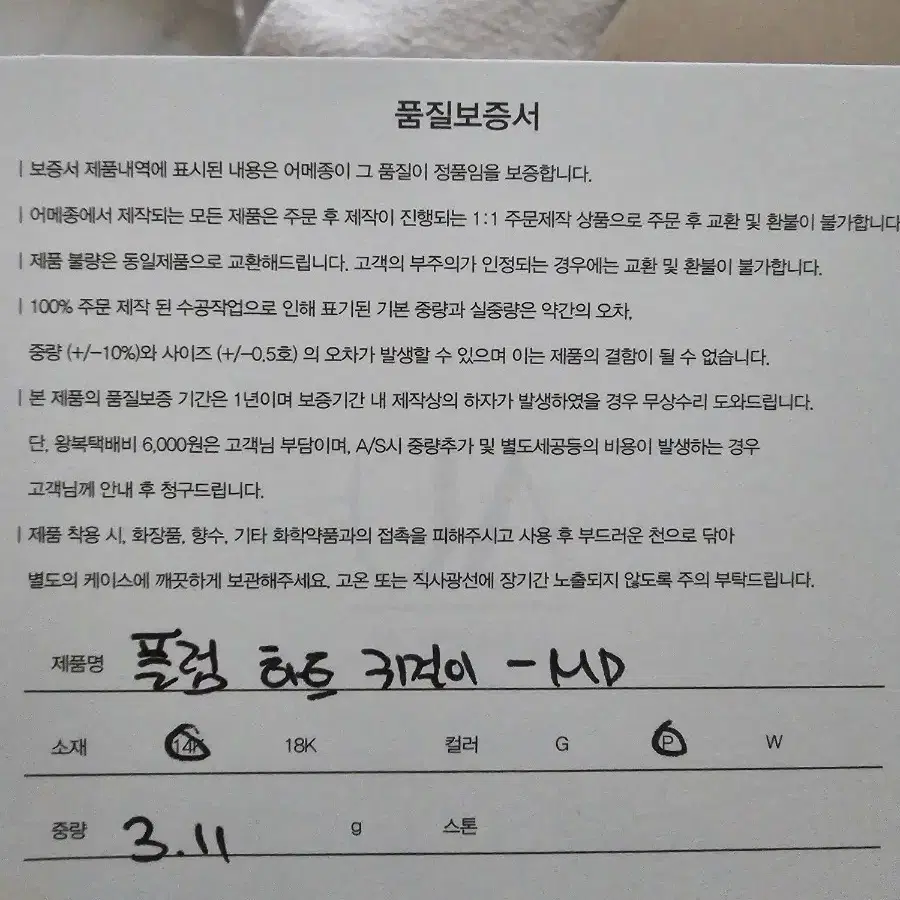 품질보증서
| 보증서 제품내역에 표시된 내용은 어메종이 그 품질이 정품임을 보증합니다.
| 어메종에서 제작되는 모든 제품은 주문 후 제작이 진행되는 1:1 주문제작 상품으로 주문 후 교환 및 환불이 불가합니다
| 제품 불량은 동일제품으로 교환해드립니다. 고객의 부주의가 인정되는 경우에는 교환 및 환불이 불가합니다.
| 100% 주문 제작 된 수공작업으로 인해 표기된 기본 중량과 실중량은 약간의 오차,
중량 (+/-10%)와 사이즈 (+/-0.5호) 의 오차가 발생할 수 있으며 이는 제품의 결함이 될 수 없습니다.
| 본 제품의 품질보증 기간은 1년이며 보증기간 내 제작상의 하자가 발생하였을 경우 무상수리 도와드립니다.
단, 왕복택배비 6,000원은 고객님 부담이며, A/S시 중량추가 및 별도세공등의 비용이 발생하는 경우
고객님께 안내 후 청구드립니다.
| 제품 착용 시, 화장품, 향수, 기타 화학약품과의 접촉을 피해주시고 사용 후 부드러운 천으로 닦아
별도의 케이스에 깨끗하게 보관해주세요. 고온 또는 직사광선에 장기간 노출되지 않도록 주의 부탁드립니다.
제품명 플럼 하트 귀걸이 - MD
소재 14K 18K 컬러 G P W
중량 3.11 g 스톤